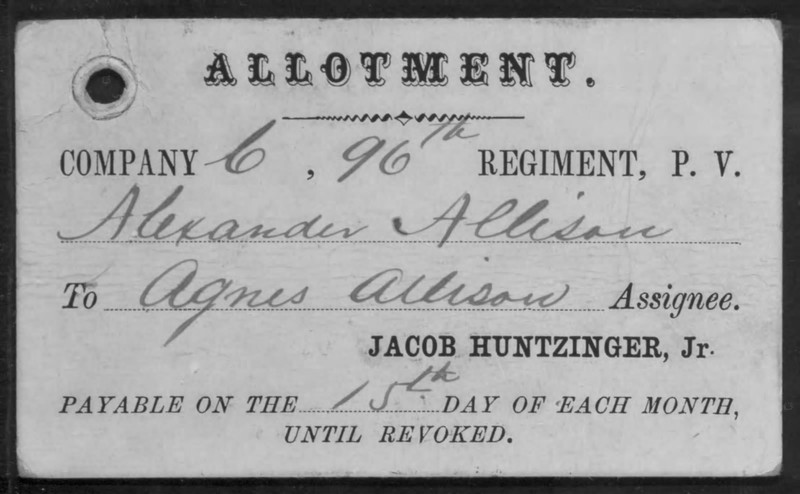 ALLOTMENT.
COMPANY C, 96th REGIMENT, P. V.
Alexander Allison
To Agnes Allison Assignee.
JACOB HUNTZINGER, Jr.
PAYABLE ON THE 15th DAY OF EACH MONTH,
UNTIL REVOKED.